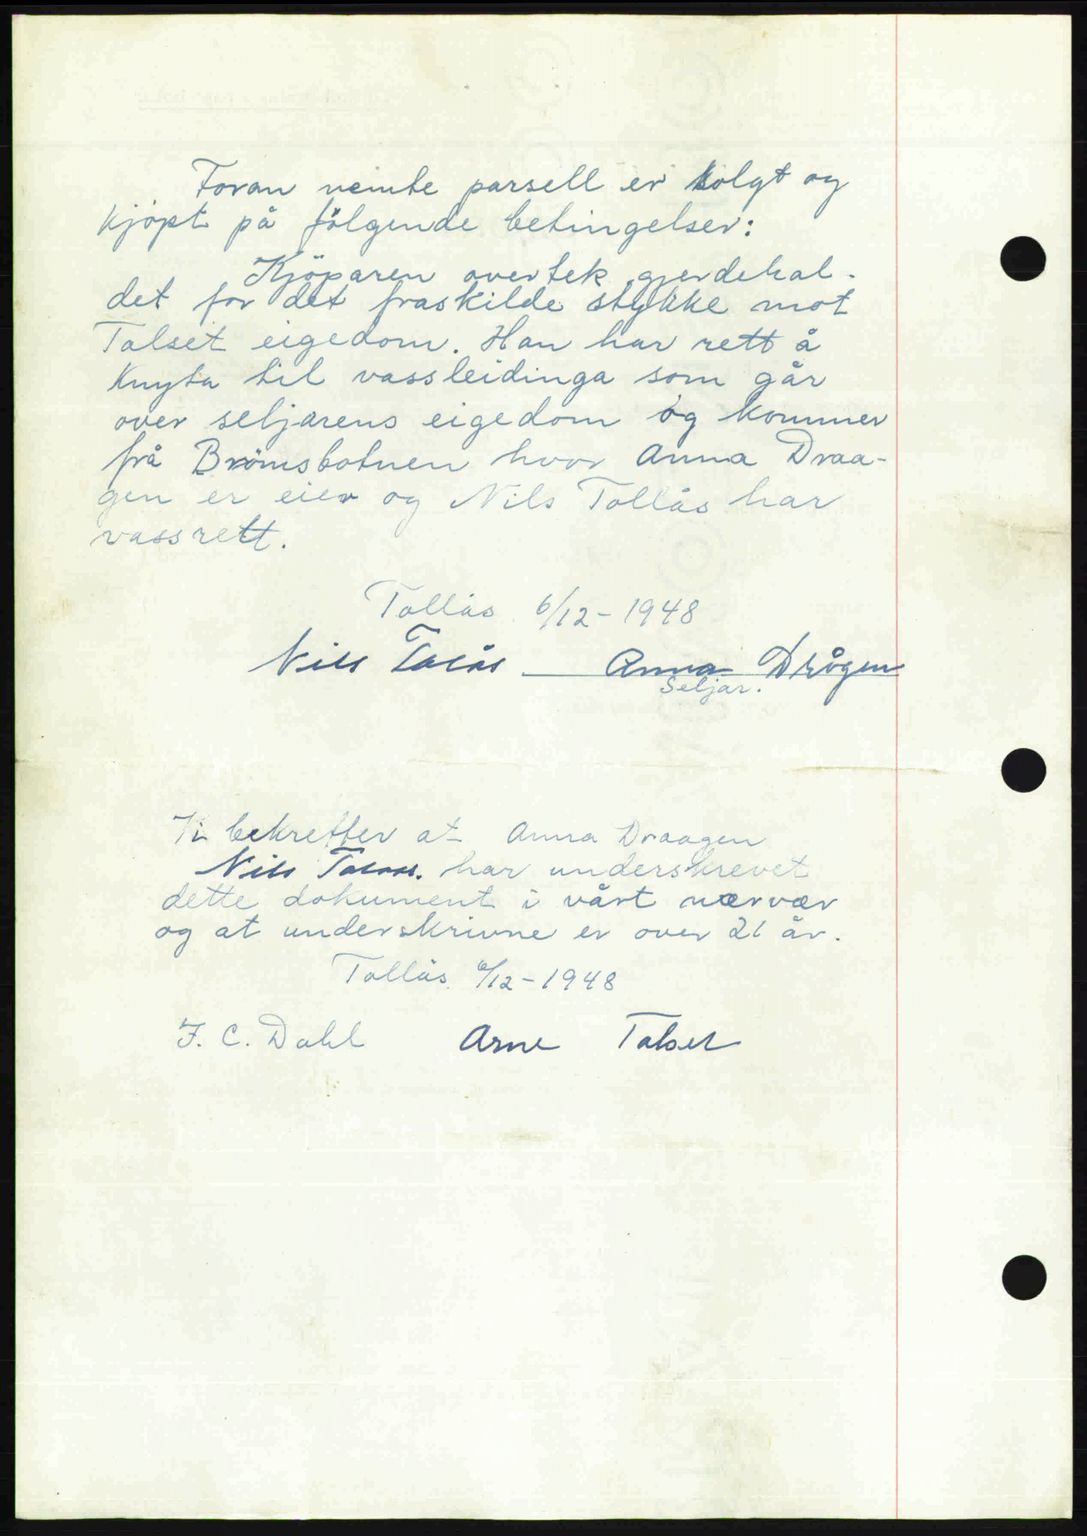 Foran nemte parsell er solgt og
kjöpt på fölgende betingelser:
Kjöparen overtek gjerdehal-
det for det fraskilde stykke mot
Talset eigedom. Han har rett å
knyta til vassleidinga som går
over seljarens eigedom og kommer
frå Brömsbotnen hvor Anna Draa-
gen er eier og Nils Tollås har
vassrett.
Tollås 6/12-1948
Nils Tolås Anna Drågen
Seljar.
Vi bekrefter at Anna Draagen
Nils har underskrevet
dette dokument i vårt nærvær
og at underskrivne er over 21 år.
Tollås 6/12-1948
J. C. Dahl Arne Talset